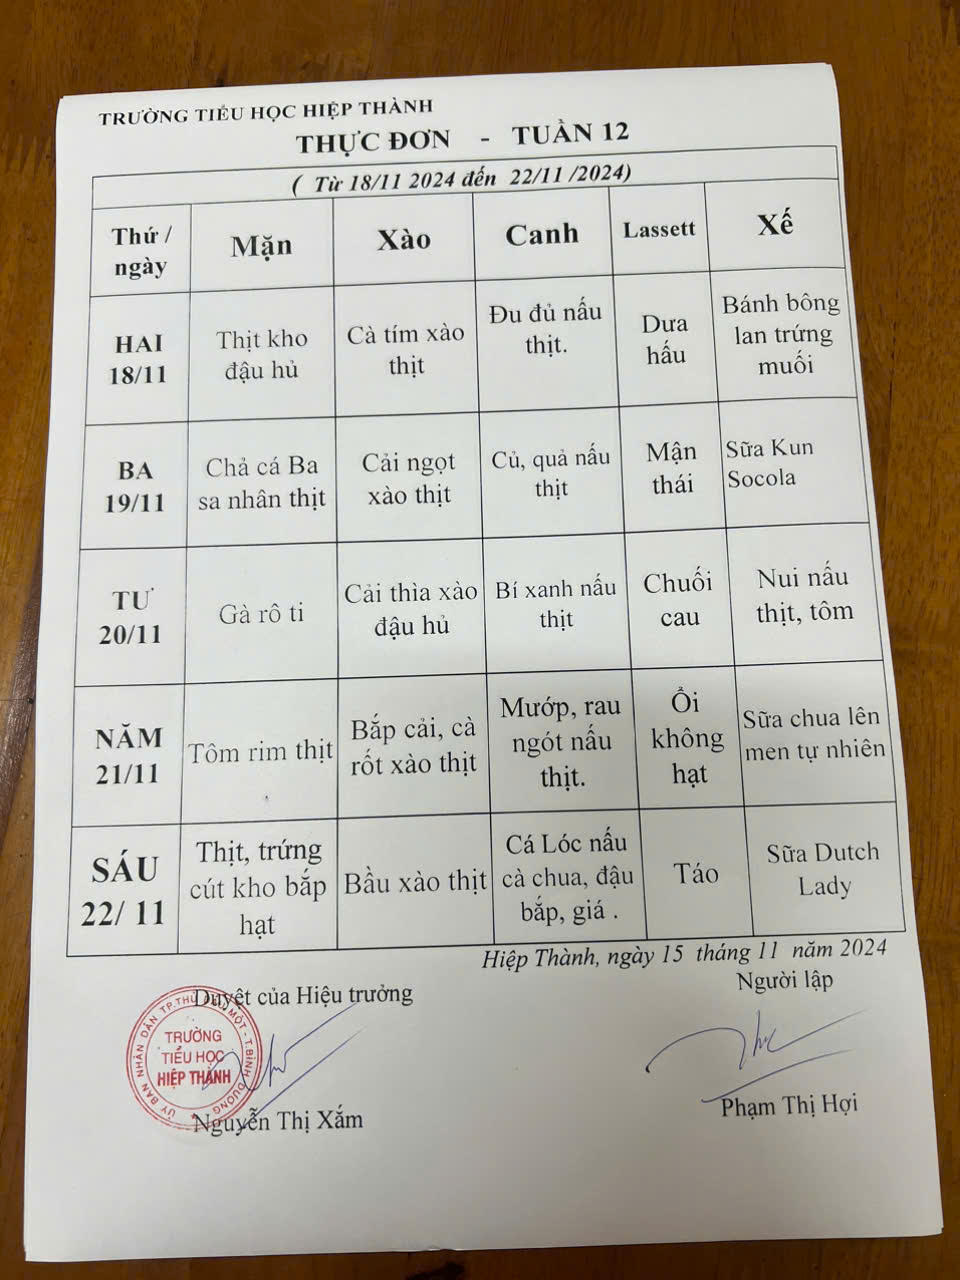 TRƯỜNG TIỂU HỌC HIỆP THÀNH
THỰC ĐƠN - TUẦN 12
( Từ 18/11 2024 đến 22/11 /2024)
Thứ /
ngày
Mặn
Xào
Canh
Lassett
Xế
HAI
18/11
Thịt kho
đậu hủ
Cà tím xào
thịt
Đu đủ nấu
thịt.
Dưa
hấu
Bánh bông
lan trứng
muối
BA
19/11
Chả cá Ba
sa nhân thịt
Cải ngọt
xào thịt
Củ, quả nấu
thịt
Mận
thái
Sữa Kun
Socola
TƯ
20/11
Gà rô ti
Cải thìa xào
đậu hủ
Bí xanh nấu
thịt
Chuối
cau
Nui nấu
thịt, tôm
NĂM
21/11
Tôm rim thịt
Bắp cải, cà
rốt xào thịt
Mướp, rau
ngót nấu
thịt.
Ổi
không
hạt
Sữa chua lên
men tự nhiên
SÁU
22/ 11
Thịt, trứng
cút kho bắp
hạt
Bầu xào thịt
Cá Lóc nấu
cà chua, đậu
bắp, giá .
Táo
Sữa Dutch
Lady
Hiệp Thành, ngày 15 tháng 11 năm 2024
Duyệt của Hiệu trưởng
Người lập
ỦY BAN NHÂN DÂN TP.THỦ DẦU MỘT - T.BÌNH DƯƠNG
TRƯỜNG
TIỂU HỌC
HIỆP THÀNH
Nguyễn Thị Xắm
Phạm Thị Hợi